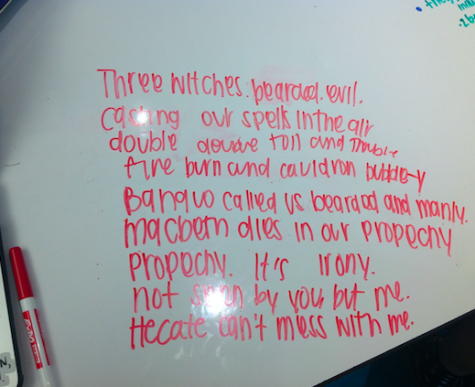 Three witches. bearded. evil.
Casting our spells in the air
double double toil and trouble
fire burn and cauldron bubble-y
Banquo called us bearded and manly.
macbeth dies in our propechy
propechy. It's irony.
not seen by you, but me.
Hecate can't mess with me.